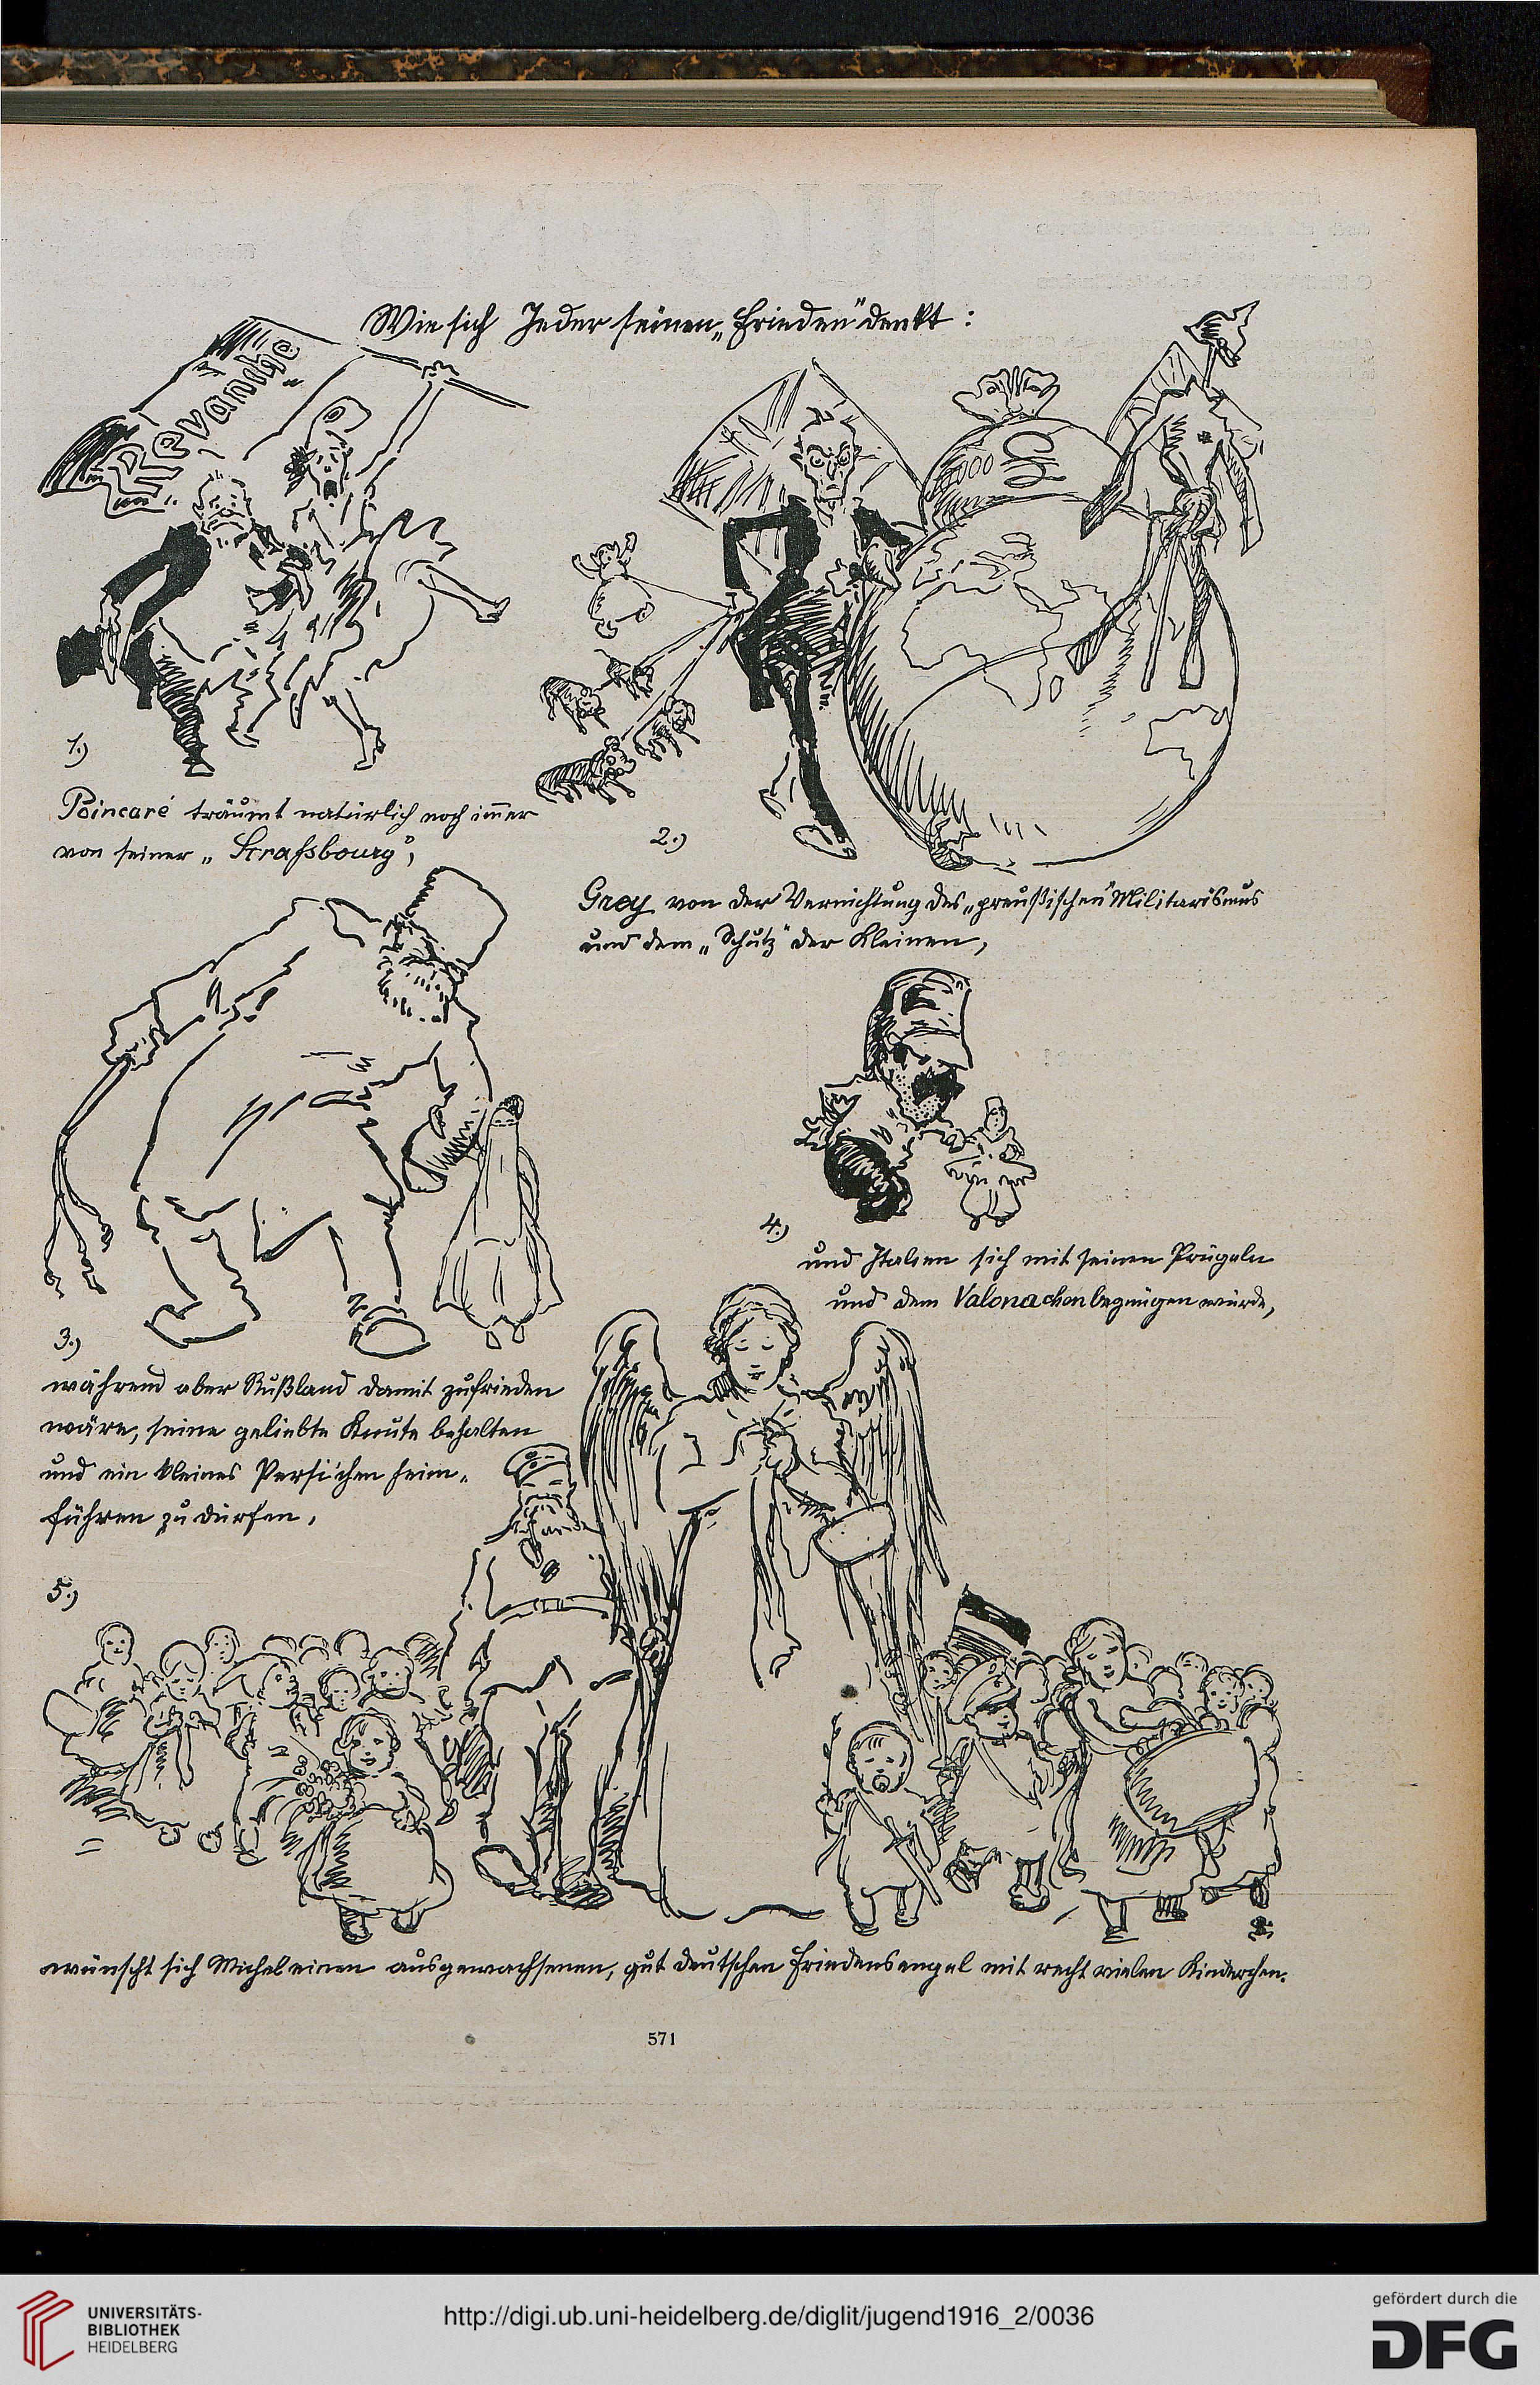 Wie sich Jeder seinen „Frieden" denkt:
„Revanche"
1.)
Poincaré träumt natürlich noch im̄er
von seiner „Strassbourg",
2.)
Grey von der Vernichtung des „preußischen" Militarismus
und dem „Schutz" der Kleinen,
3.)
während aber Rußland damit zufrieden
wäre, seine geliebte Knute behalten
und ein kleines Persi'chen heim-
führen zu dürfen,
4.)
und Italien sich mit seinen Prügeln
und dem Valonachen begnügen würde,
5.)
wünscht sich Michel einen ausgewachsenen, gut deutschen Friedensengel mit recht vielen Kinderchen.
571
UNIVERSITÄTS-
BIBLIOTHEK
HEIDELBERG
http://digi.ub.uni-heidelberg.de/diglit/jugend1916_2/0036
gefördert durch die
DFG